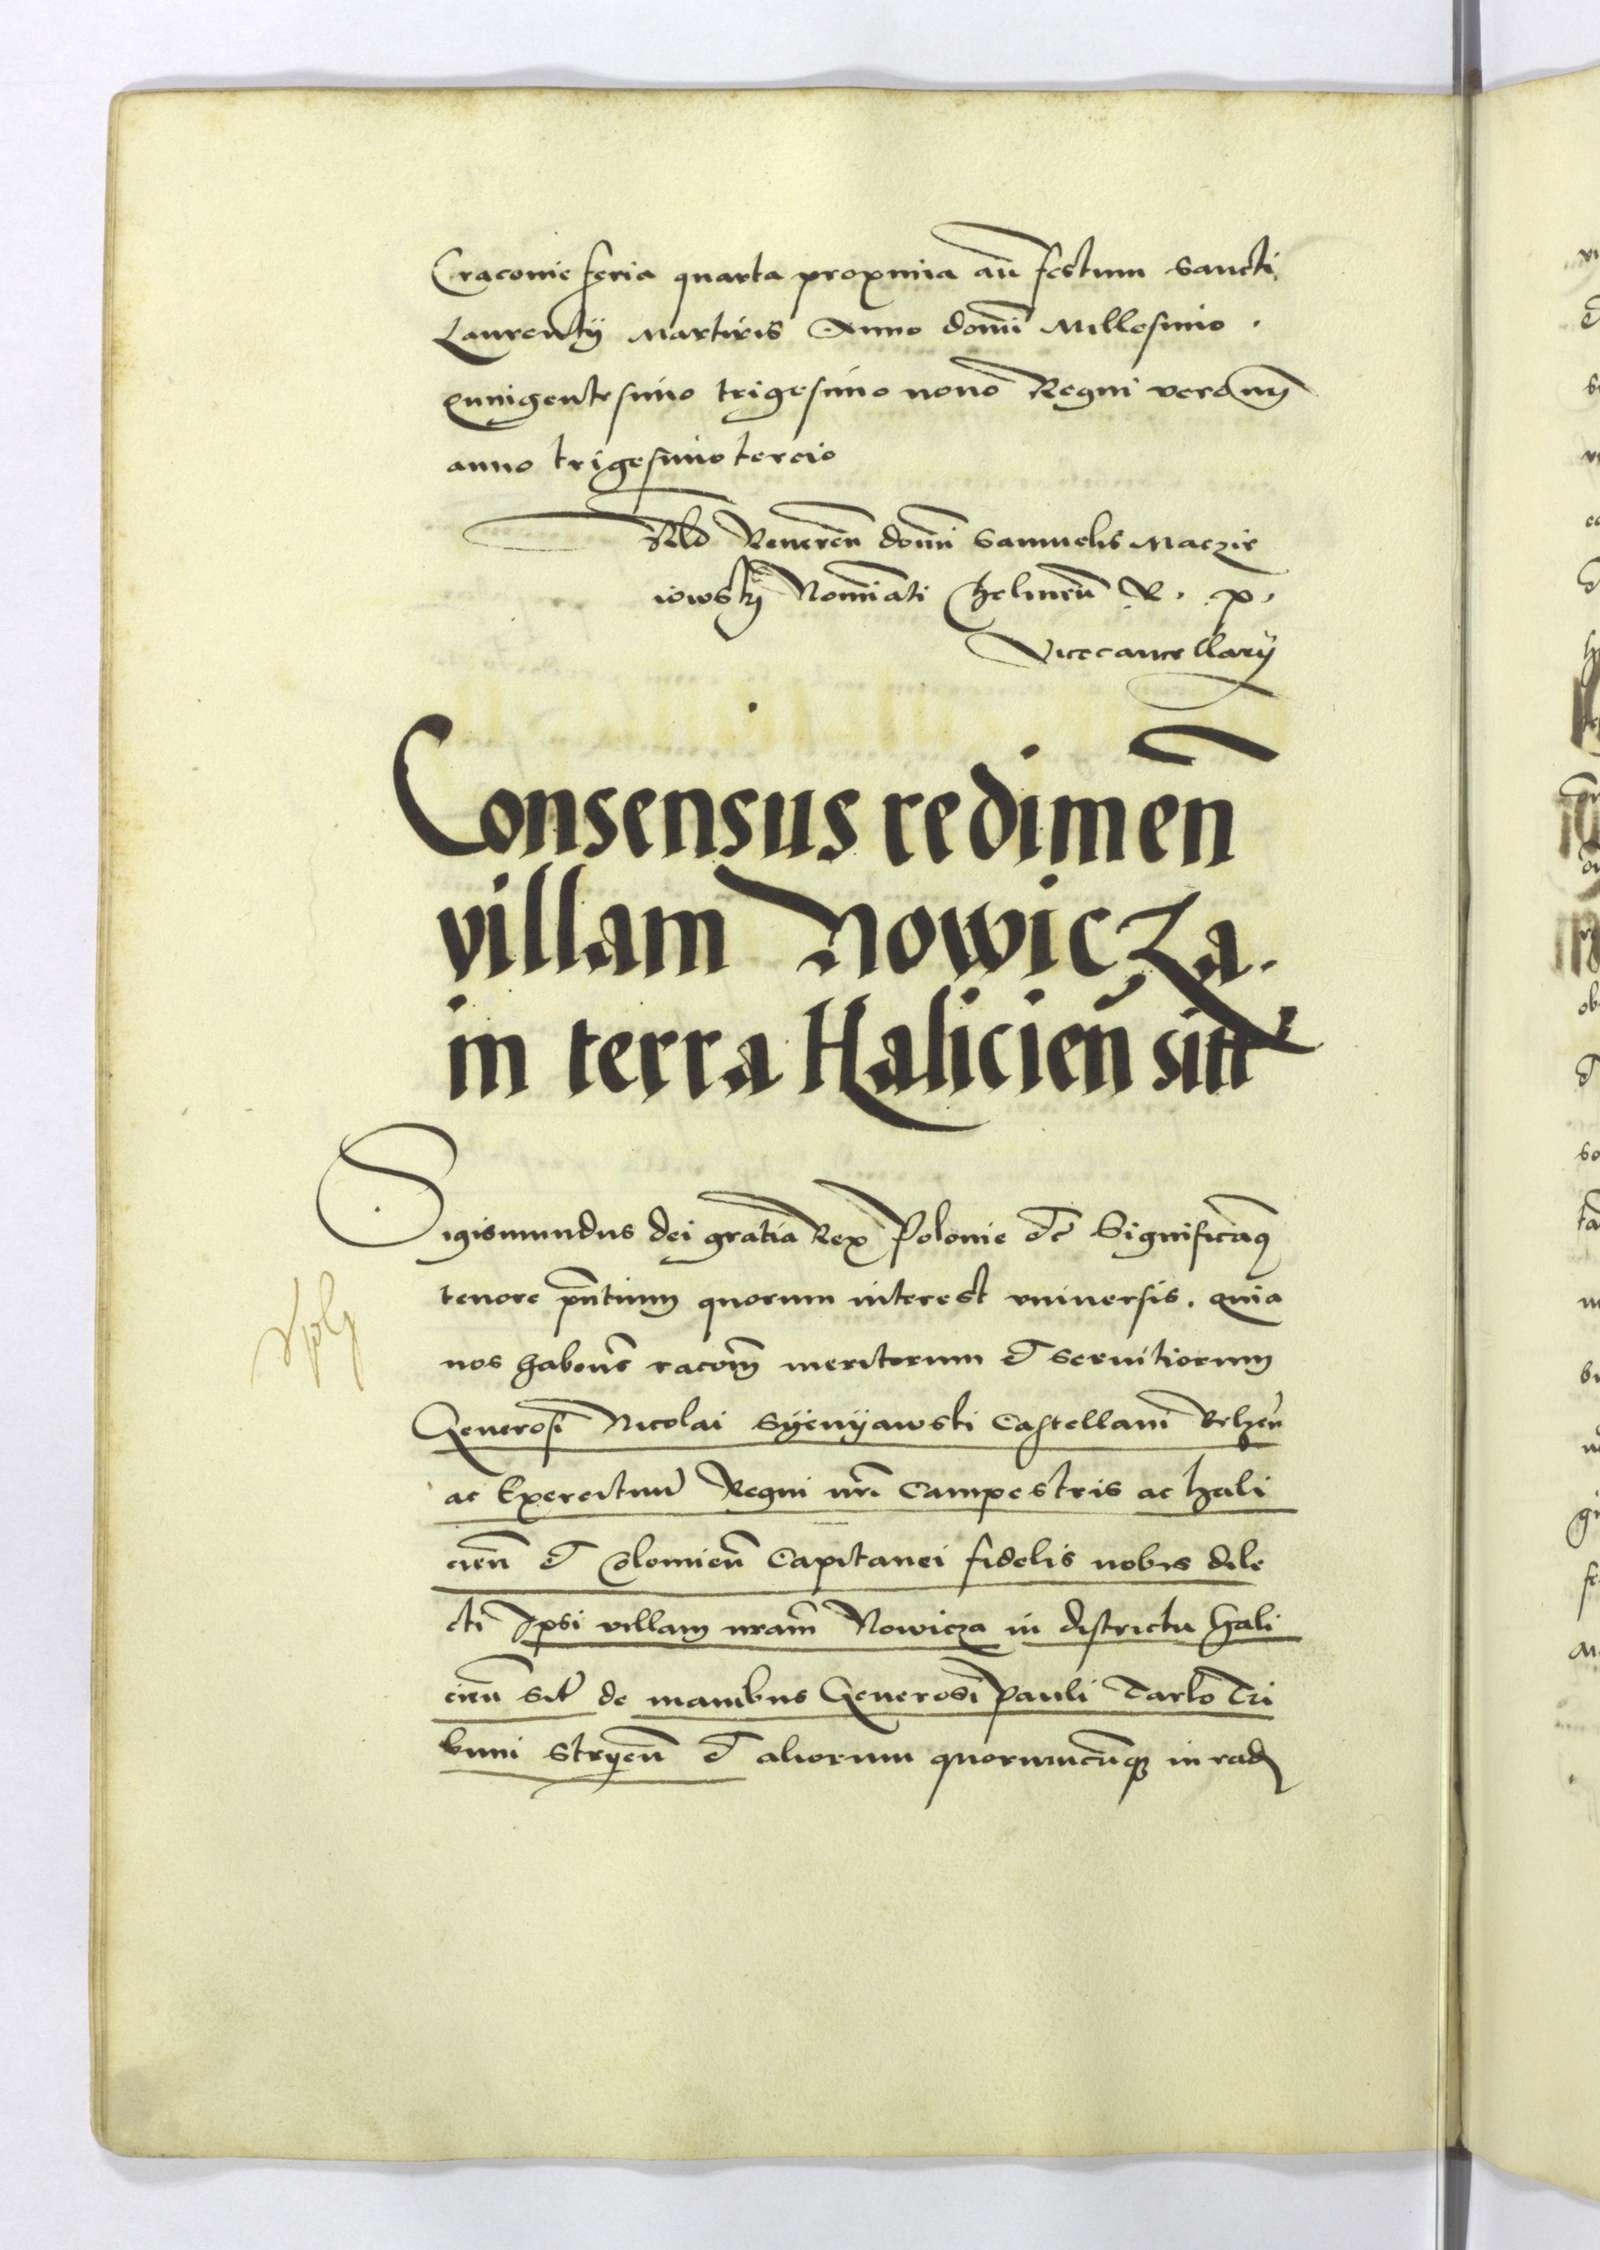 Cracovie feria quarta proxima añ festum sancti
Laurentÿ Martiris Anno domĩ Millesimo .
quingentesimo trigesimo nono Regni vero nrĩ
anno trigesimo tercio
Rlo Reveren domi Samuelis Maczie
iowskÿ Nominati Chelmen R . p .
Vicecancellarÿ
Consensus redimen̄
villam Nowicza .
in terra Halicien̄ sitt
Sigismundus dei gratia Rex Polonie etc Significamus
tenore pñtium quorum interest vniversis . quia
nos habentes racoem meritorum et servitiorum
Generosi Nicolai Syenyawski Castellani Belzen̄
ac Exercituum Regni nrĩ Campestris ac hali
cien̄ et Colomien̄ Capitanei fidelis nobis dile
cti Ipsi villam nram̄ Nowicza in districtu hali
cien̄ sit de manibus Generosi Pauli Tarlo Tri
buni Stryen̄ et aliorum quorumcunqz in rad